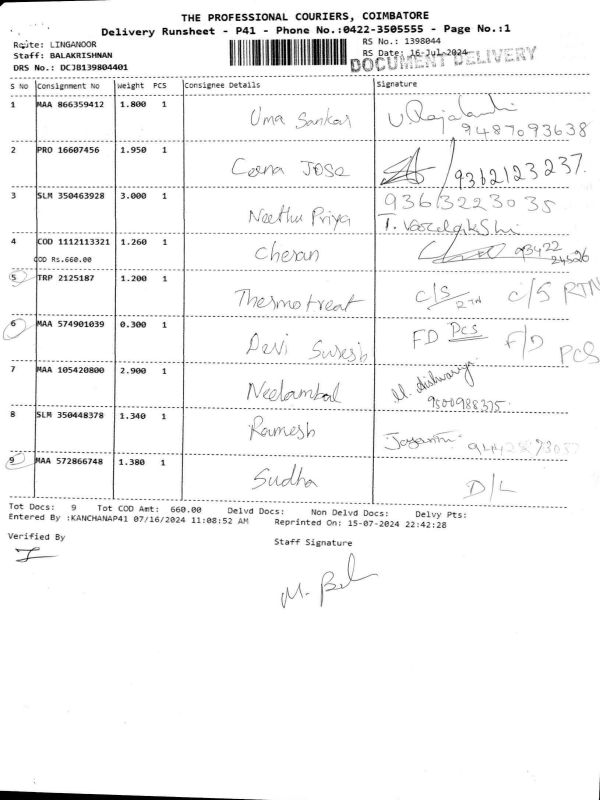 THE PROFESSIONAL COURIERS, COIMBATORE
Delivery Runsheet - P41 - Phone No.:0422-3505555 - Page No.:1
Route: LINGANOOR
RS No.: 1398044
Staff: BALAKRISHNAN
RS Date: 16-Jul-2024
DRS No.: DCJB139804401
DOCUMENT DELIVERY
S No Consignment No Weight PCS Consignee Details Signature
1 MAA 866359412 1.800 1 Uma Sankar
9487093638
2 PRO 16607456 1.950 1 JOSE 9362123237.
3 SLM 350463928 3.000 1 Neethu Priya 9363223035
4 COD 1112113321 1.260 1 Cheran 93422
COD Rs.660.00 24626
5 TRP 2125187 1.200 1 Thermotreat C/S RTN C/S RTN
6 MAA 574901039 0.300 1 Devi Suresh FD Pcs F/D PCS
7 MAA 105420800 2.900 1 Neelambal
9500988375.
8 SLM 350448378 1.340 1 Ramesh Jayanthi
9 MAA 572866748 1.380 1 Sudha D/L
Tot Docs: 9 Tot COD Amt: 660.00 Delvd Docs: Non Delvd Docs: Delvy Pts:
Entered By :KANCHANAP41 07/16/2024 11:08:52 AM Reprinted On: 15-07-2024 22:42:28
Verified By
Staff Signature